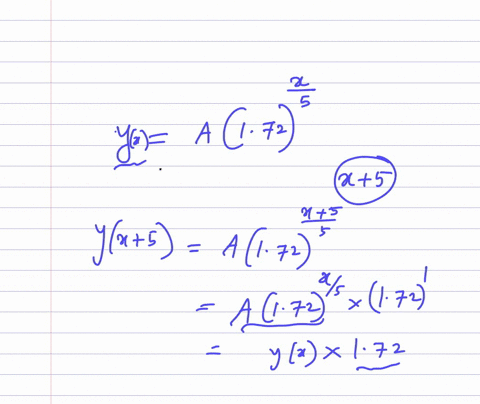 y(x) = A(1.72)^(x/5)
x+5
y(x+5) = A(1.72)^((x+5)/5)
= A(1.72)^(x/5) × (1.72)^1
= y(x) × 1.72